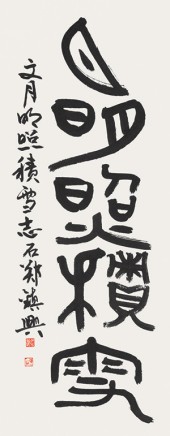 月明照積雪
文月明照積雪志石鄭鎮興